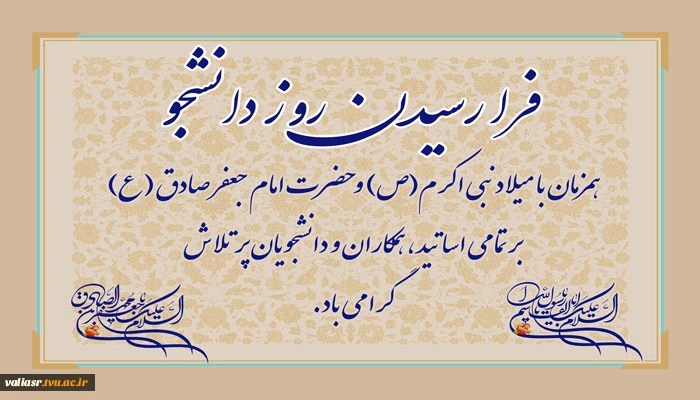 فرا رسیدن روز دانشجو
همزمان با میلاد نبی اکرم (ص) و حضرت امام جعفر صادق (ع)
بر تمامی اساتید، همکاران و دانشجویان پر تلاش
گرامی باد.
السلام علیک یا
السلام علیک یا
valiasr.tvu.ac.ir